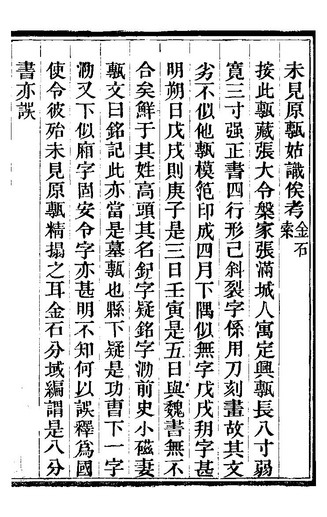 未見原甎姑識俟考金石索
按此甎藏張大令槃家張滿城人寓定興甎長八寸弱
寬三寸强正書四行形已斜裂字係用刀刻畫故其文
劣不似他甎模范印成四月下隅似無字戊戌朔字甚
明朔日戊戌則庚子是三日壬寅是五日與魏書無不
合矣鮮于其姓高頭其名鈆字疑銘字泐前史小磁妻
甎文曰銘記此亦當是墓甎也縣下疑是功曹下一字
泐又下似廟字固安令字亦甚明不知何以誤釋爲國
使令彼殆未見原甎精搨之耳金石分域編謂是八分
書亦誤